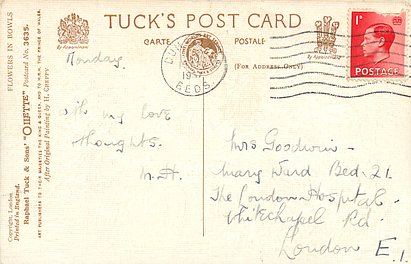 TUCK'S POST CARD
CARTE POSTALE
(FOR ADDRESS ONLY)
By Appointment
By Appointment
FLOWERS IN BOWLS
Copyright, London.
Printed in England.
Raphael Tuck & Sons' "OILETTE" Postcard No. 3635.
ART PUBLISHERS TO THEIR MAJESTIES THE KING & QUEEN, AND TO H.R.H. THE PRINCE OF WALES.
After Original Painting by H.
193
BEDS.
1D
POSTAGE
Monday.
With my love
thoughts.
Mrs Goodwin
Mary Ward Bed. 21.
The London Hospital
Whitechapel Rd.
London E.1